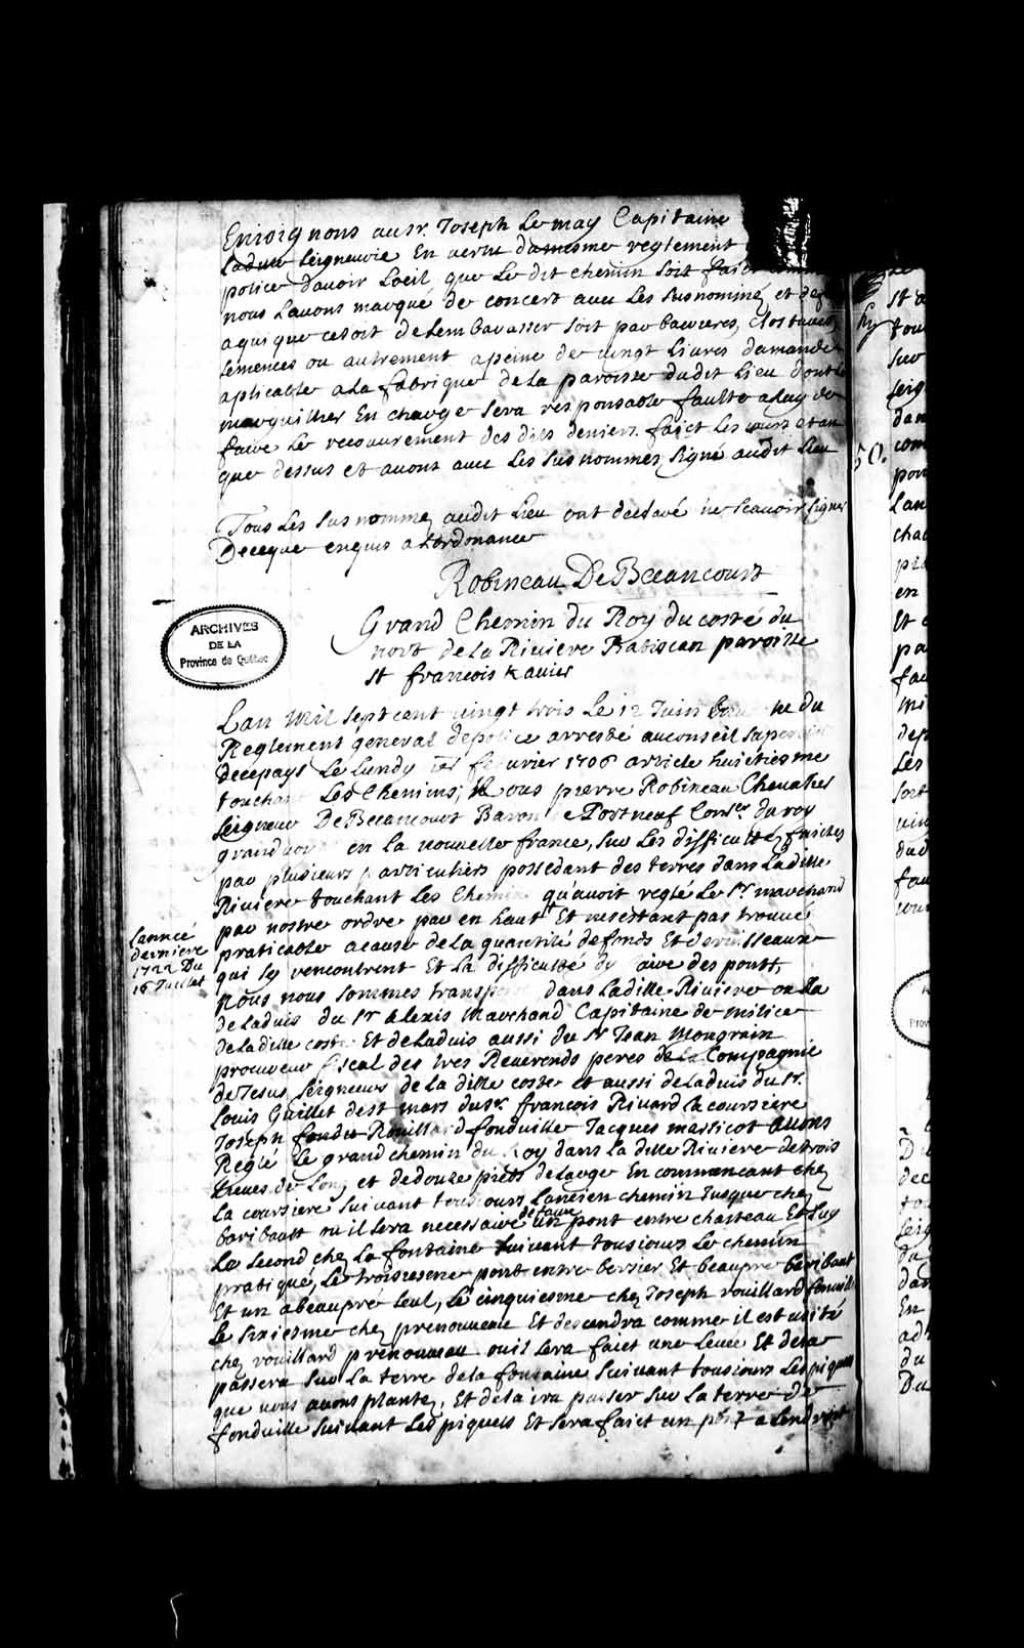 Enjoignons au sr. Joseph Le may Capitaine
Ladite Seigneurie En vertu du mesme reglement
police davoir Loeil, que Le dit chemin soit faict
nous Lavons marqué de concert avec Les susnommé, et
a qui que ce soit de Lembarasser soit par barrieres, clostures
semences ou autrement a peine de vingt Livres damande
aplicable a La fabrique de La paroisse dudit Lieu dont
marguillier En charge sera responsable faulte a luy de
faire Le recouvrement des dits deniers. faict Les jours et an
que dessus et avons avec Les susnommez signé audit Lieu
Tous Les susnommez audit Lieu ont declaré ne scavoir signer
De ce que enquis a Lordonance
Robineau De Becancourt
Grand Chemin du Roy du costé du
nort de La Riviere Batiscan paroisse
st francois Xavier
ARCHIVES
DE LA
Province de Québec
Lan Mil sept cent vingt trois Le 12 Juin du
Reglement general de police arresté au conseil superieur
de ce pays Le Lundy fevrier 1706 article huictiesme
touchant Les Chemins; Nous pierre Robineau Chevalier
Seigneur De Becancourt Baron de Portneuf Conser. du roy
grand en la nouvelle france, sur Les difficultez faictes
par plusieurs particuliers possedant des terres dans Ladite
Riviere touchant Les Chemins qu'avoit reglé Le Sr. marchand
par nostre ordre par en haut Et ne sestant pas trouvé
Lannee
derniere
1722 Du
16 Juillet
praticable a cause de la quantité de fonds Et de ruisseaux
qui sy rencontrent Et La difficulté dy faire des ponts,
Nous nous sommes transporté dans Ladite Riviere ou
de Ladvis du Sr Alexis Marchand Capitaine de milice
de La dite coste Et de Ladvis aussi du Sr Jean Mongrain
procureur fiscal des tres Reverends peres de La Compagnie
de Jesus Seigneurs de la dite coste et aussi de Ladvis du Sr.
Louis Guillet de st mars du sr. francois Rivard La coursiere
Joseph Rouillard fondville Jacques massicot Avons
Reglé Le grand chemin du Roy dans la dite Riviere de trois
Lieues de Long et de douze pieds de Large En commencant chez
La coursiere suivant tousjours Lancien chemin Jusque chez
baribault ou il sera necessaire de faire un pont entre chasteau Et Luy
Le second chez La fontaine suivant tousjours Le chemin
pratiqué, Le troisiesme pont entre Et beaupré baribaut
Et un a beaupré seul, Le cinquiesme chez Joseph rouillard
Le sixiesme chez prenouveau Et descendra comme il est usité
chez rouillard prenouveau ou il sera faict une Et de la
passera sur La terre de la fontaine suivant tousjours Les piquets
que nous avons plantez, Et de la ira passer sur La terre de
fondville suivant Les piquets Et sera faict un pont a Lendroit
50.